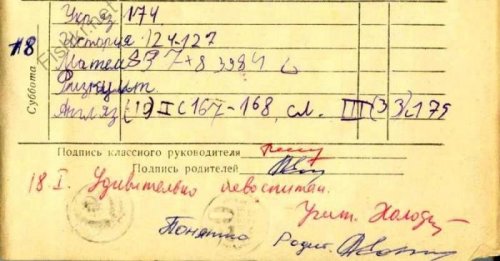 Укр яз 174
18
История 124-127
Суббота
Физкульт.
Англ яз (19) II с 167-168, сл. III (33) с 175
Подпись классного руководителя
Подпись родителей
18 I. Удивительно невоспитан.
Учит.
Понятно Родит.